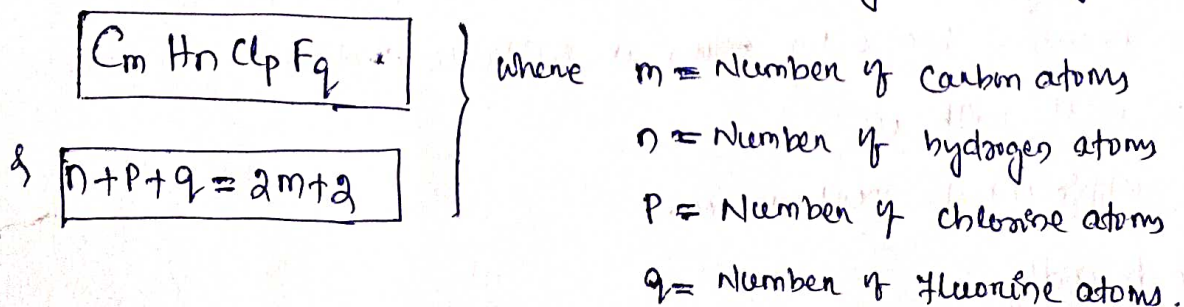 Cm Hn Clp Fq .
& n+p+q = 2m+2
where m = Number of Carbon atoms
n = Number of hydrogen atoms
p = Number of chlorine atoms
q = Number of fluorine atoms.